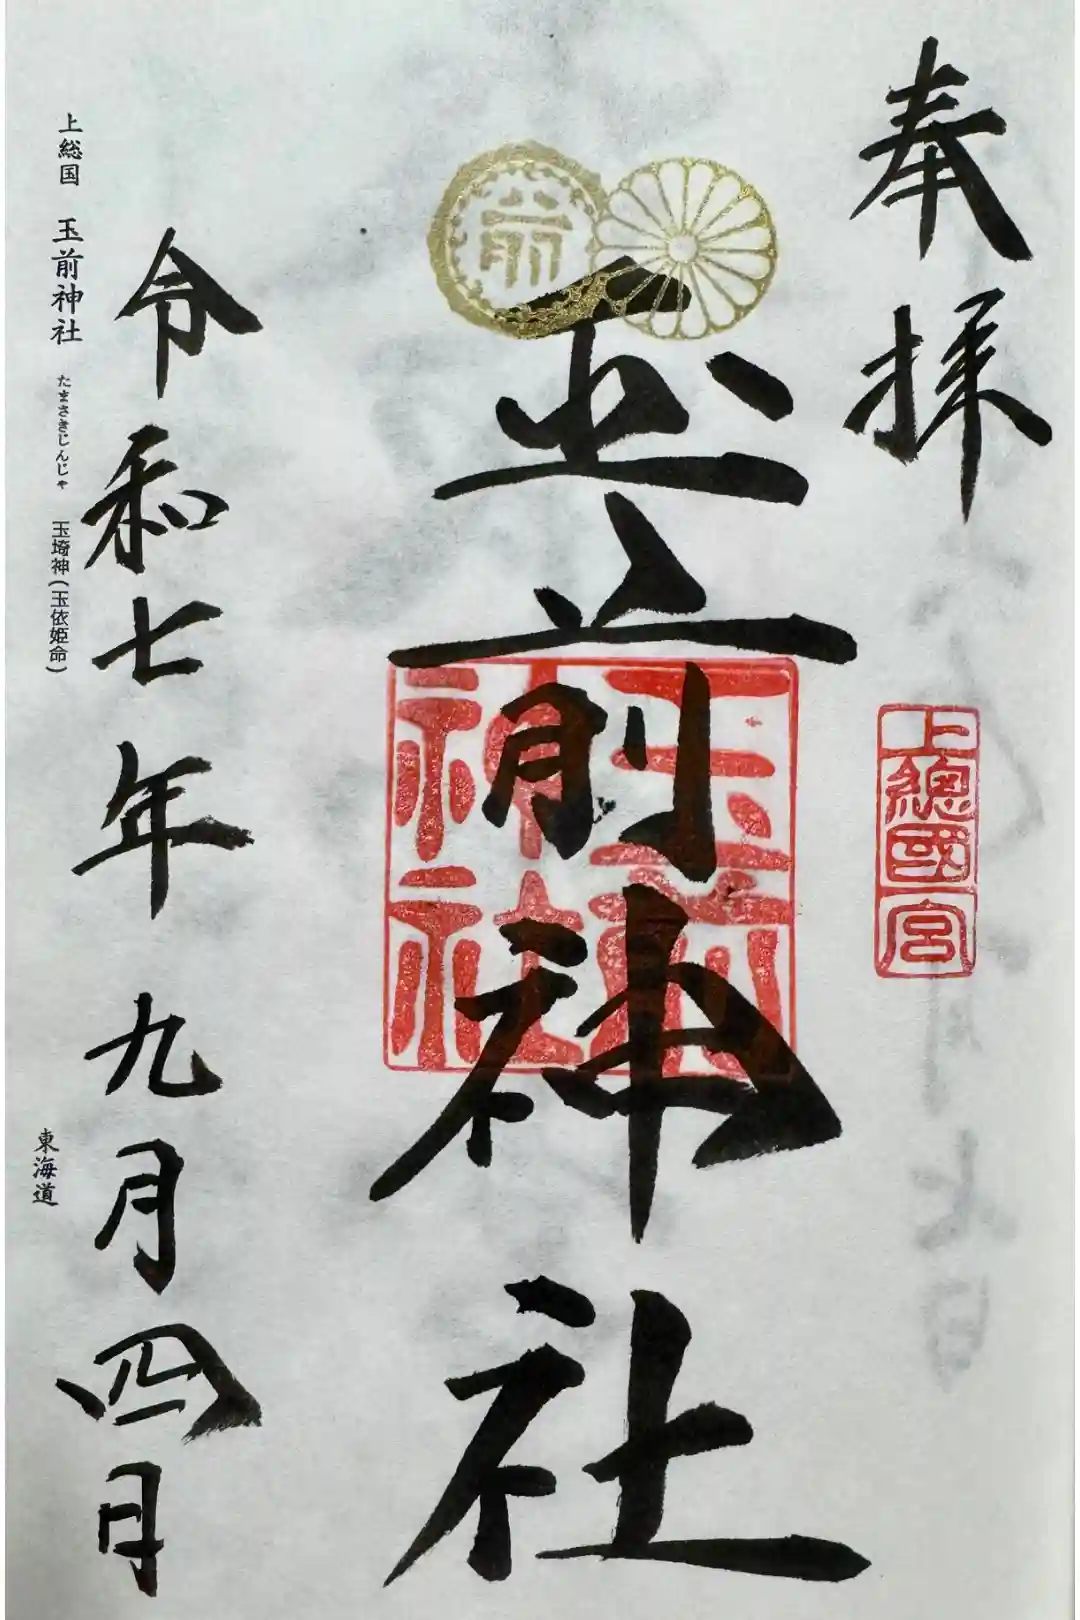 奉拝
上總國一宮
玉前神社
玉前神社
令和七年九月四日
上総国 玉前神社 たまさきじんじゃ 玉埼神(玉依姫命)
東海道